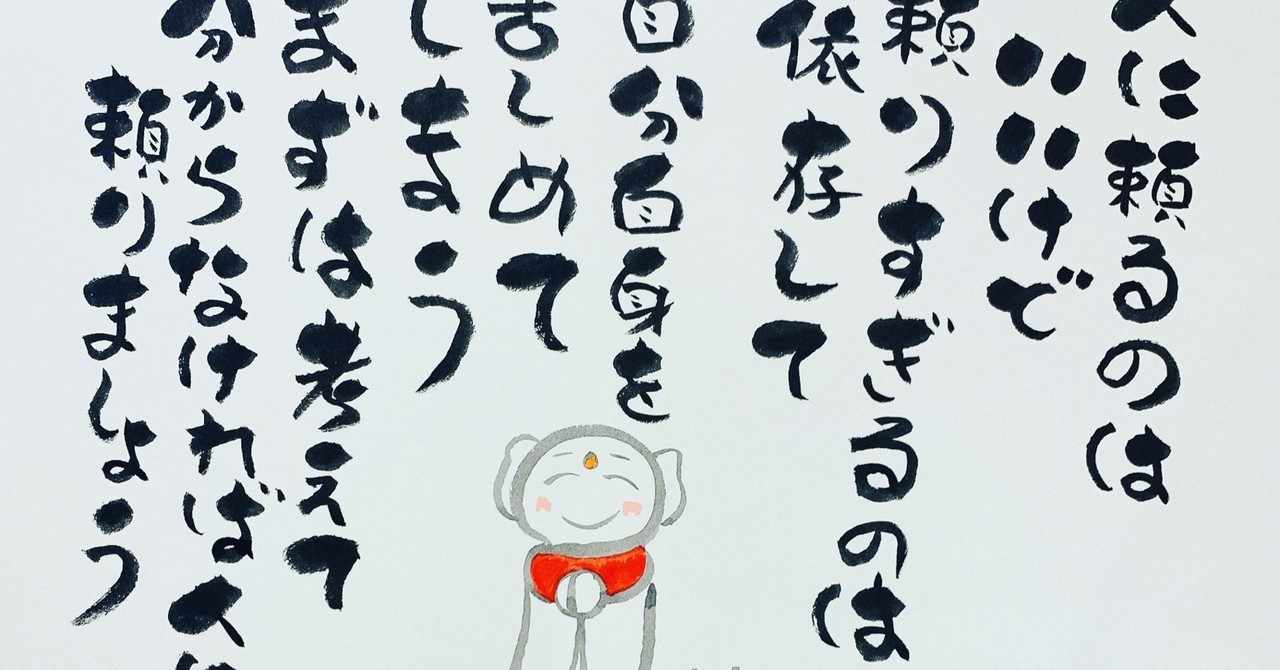 人に頼るのは
いいけど
頼りすぎるのは
依存して
自分自身を
苦しめて
しまう
まずは考えて
分からなければ人に
頼りましょう